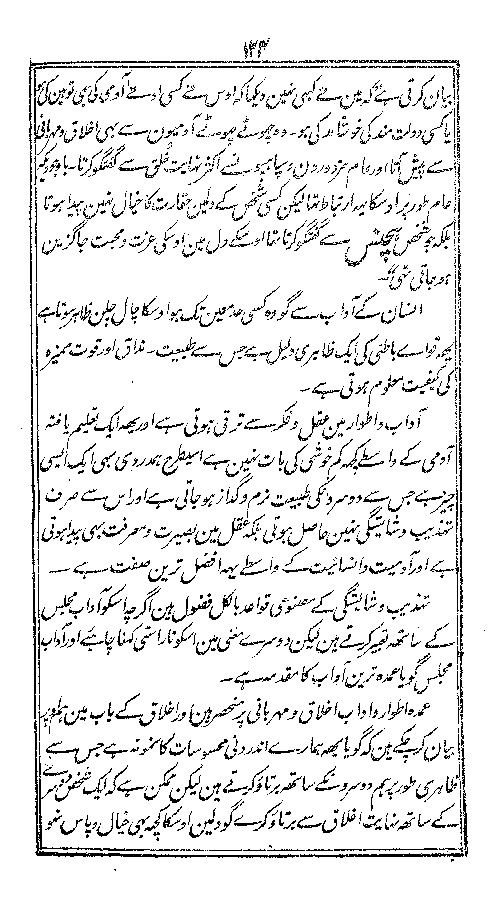 ۱۳۴
بیان کرتی ہے کہ مین نے کبھی نہین دیکھا کہ اوس نے کسی ادنے آدمی کی بھی توہین کی ہو
یا کسی دولتمند کی خوشامد کی ہو۔ وہ چھوٹے چھوٹے آدمیون سے بھی اخلاق و مہربانی
سے پیش آتا اور عام مزدورون و سپاہیونسے اکثر نہایت خُلق سے گفتگو کرتا۔ باوجودیکہ
عام طور پر اوسکا میدارتباط تھا لیکن کسی شخص کے دلمین حقارت کا خیال نہین پیدا ہوتا
بلکہ جو شخص سے گفتگو کرتا تھا اوسکے دل مین اوسکی عزت و محبت جاگزین
ہو جاتی تھی
انسان کے آداب سے گو وہ کسی حد معین تک ہو اوسکا چال چلن ظاہر ہوتا ہے
یہہ قواے باطنی کی ایک ظاہری دلیل ہے جس سے طبیعت۔ مذاق اور قوت ممیزہ
کی کیفیت معلوم ہوتی ہے۔
آداب و اطوار مین عقل و فکر سے ترقی ہوتی ہے اور یہہ ایک تعلیم یافتہ
آدمی کے واسطے کچھ کم خوشی کی بات نہین ہے اسیطرح ہمدردی بھی ایک ایسی
چیز ہے جس سے دوسرونکی طبیعت نرم و گداز ہو جاتی ہے اور اس سے صرف
تہذیب و شایستگی نہین حاصل ہوتی بلکہ عقل مین بصیرت و معرفت بھی پیدا ہوتی
ہے اور آدمیت و انسانیت کے واسطے یہہ افضل ترین صفت ہے۔
تہذیب و شایستگی کے مصنوعی قواعد بالکل فضول ہین اگرچہ اسکو آداب مجلس
کے ساتھ تعبیر کرتے ہین لیکن دوسرے معنی مین اسکو ناراستی کہنا چاہئے اور آداب
مجلس گویا عمدہ ترین آداب کا مقدمہ ہے۔
عمدہ اطوار و آداب اخلاق و مہربانی پر منحصر ہین اور اخلاق کے باب مین ہم
بیان کر چکے ہین کہ گویا یہہ ہمارے اندرونی محسوسات کا نمونہ ہے جس سے
ظاہری طور پر ہم دوسرونکے ساتھ برتاؤ کرتے ہین لیکن ممکن ہے کہ ایک شخص دوسرے
کے ساتھ نہایت اخلاق سے برتاؤ کرے گو دلمین اوسکا کچھ بھی خیال و پاس نہو